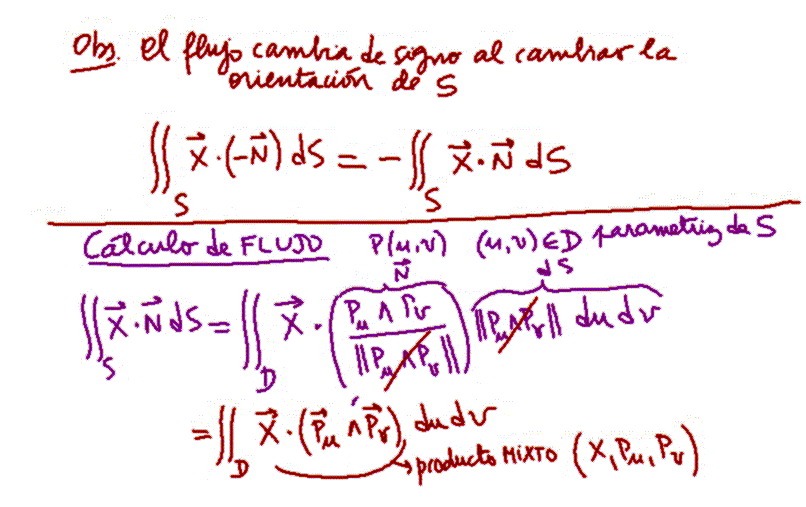 Obs. El flujo cambia de signo al cambiar la
orientación de S
∬_S X⃗·(-N⃗) dS = - ∬_S X⃗·N⃗ dS
Cálculo de FLUJO P(u,v) (u,v)∈D parametriz de S
N⃗ dS
∬_S X⃗·N⃗ dS = ∬_D X⃗·(P_u ∧ P_v / ||P_u ∧ P_v||) ||P_u ∧ P_v|| du dv
= ∬_D X⃗·(P⃗_u ∧ P⃗_v) du dv
→ producto MIXTO (X, P_u, P_v)